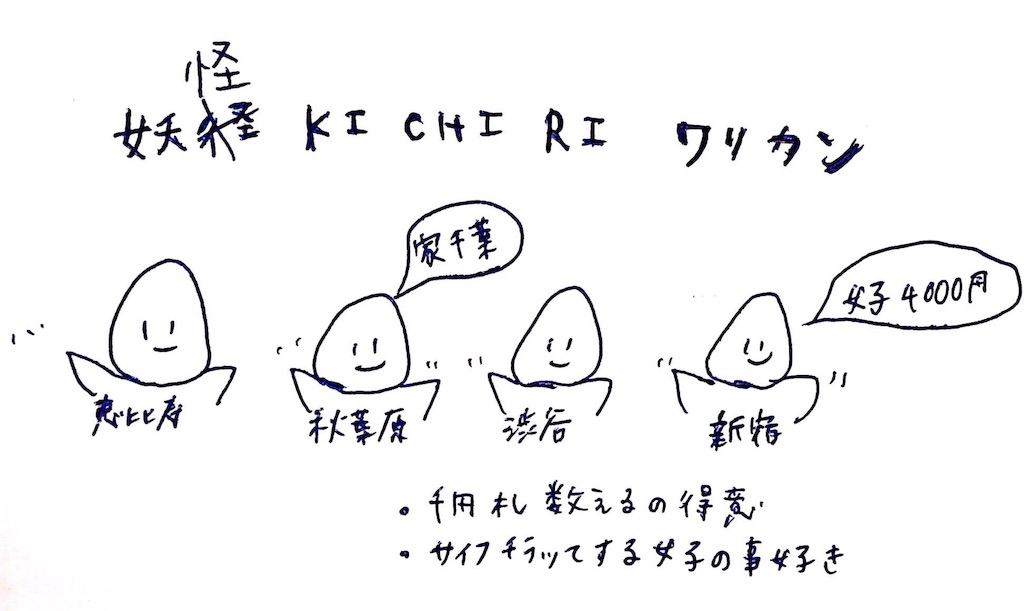 怪
妖怪 KI CHI RI ワリカン
家千葉
女子4000円
恵比寿
秋葉原
渋谷
新宿
・千円札数えるの得意
・サイフチラッてする女子の事好き